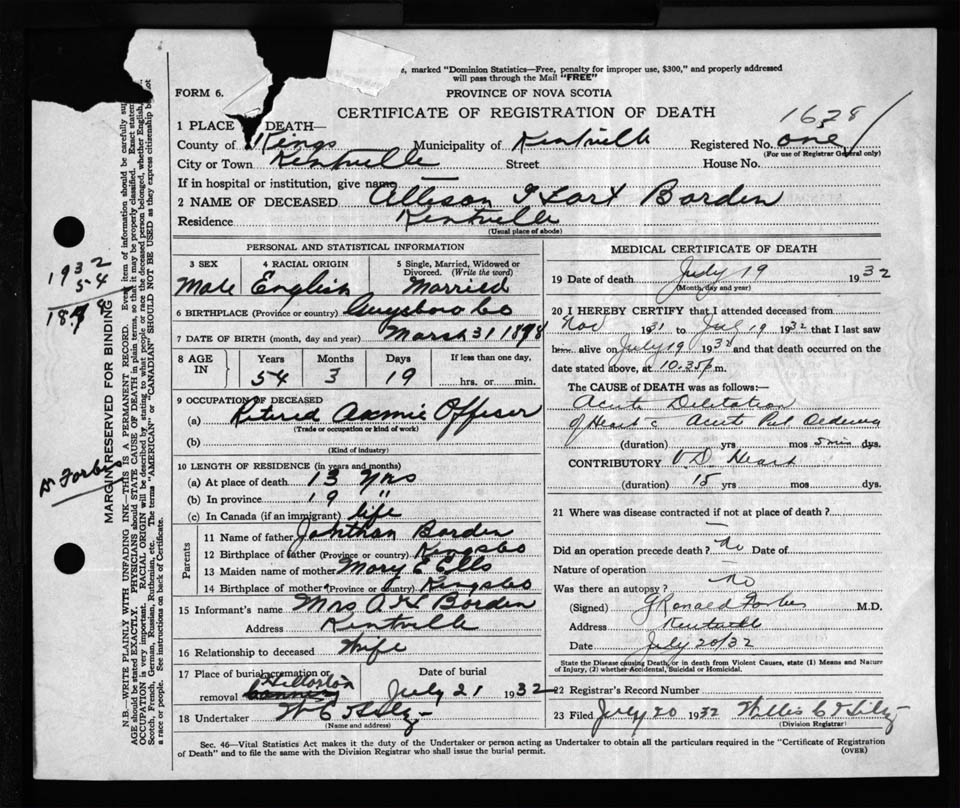 e, marked "Dominion Statistics—Free, penalty for improper use, $300," and properly addressed
will pass through the Mail "FREE"
FORM 6.
PROVINCE OF NOVA SCOTIA
CERTIFICATE OF REGISTRATION OF DEATH
1638
1 PLACE DEATH—
County of Kings Municipality of Kentville Registered No. one
(For use of Registrar General only)
City or Town Kentville Street House No.
If in hospital or institution, give name
2 NAME OF DECEASED Allison Hart Borden
Residence Kentville
(Usual place of abode)
PERSONAL AND STATISTICAL INFORMATION
3 SEX 4 RACIAL ORIGIN 5 Single, Married, Widowed or Divorced. (Write the word)
Male English Married
6 BIRTHPLACE (Province or country) Guysboro Co
7 DATE OF BIRTH (month, day and year) March 31 1878
8 AGE IN Years Months Days If less than one day,
54 3 19 hrs. or min.
9 OCCUPATION OF DECEASED
(a) Retired Officer
(Trade or occupation or kind of work)
(b)
(Kind of industry)
10 LENGTH OF RESIDENCE (in years and months)
(a) At place of death 13 yrs
(b) In province 19 "
(c) In Canada (if an immigrant) life
Parents
11 Name of father Johthan Borden
12 Birthplace of father (Province or country) Kings Co
13 Maiden name of mother Mary E Ells
14 Birthplace of mother (Province or country) Kings Co
15 Informant's name Mrs A H Borden
Address Kentville
16 Relationship to deceased Wife
17 Place of burial, cremation or removal Date of burial
July 21 1932
18 Undertaker W C
(Name and address)
MEDICAL CERTIFICATE OF DEATH
19 Date of death July 19 1932
(Month, day and year)
20 I HEREBY CERTIFY that I attended deceased from
Nov 1931 to Jul 19 1932 that I last saw
him alive on July 19 1932 and that death occurred on
date stated above, at 10.35 p m.
The CAUSE of DEATH was as follows:—
Acute Dilitation
of Heart c Acute Pul Oedema
(duration) yrs mos 5 min dys.
CONTRIBUTORY V.D. Heart
(duration) 15 yrs mos dys.
21 Where was disease contracted if not at place of death? —
Did an operation precede death? No Date of
Nature of operation —
Was there an autopsy? No
(Signed) J Ronald Forbes M.D.
Address Kentville
Date July 20/32
State the Disease causing Death, or in death from Violent Causes, state (1) Means and Nature
of Injury, (2) whether Accidental, Suicidal or Homicidal.
22 Registrar's Record Number
23 Filed July 20 1932 Willis C
(Division Registrar)
Sec. 46—Vital Statistics Act makes it the duty of the Undertaker or person acting as Undertaker to obtain all the particulars required in the "Certificate of Registration
of Death" and to file the same with the Division Registrar who shall issue the burial permit. (OVER)
1932
54
1878
Dr Forbes
MARGIN RESERVED FOR BINDING
N.B.—WRITE PLAINLY WITH UNFADING INK—THIS IS A PERMANENT RECORD. Every item of information should be carefully
AGE should be stated EXACTLY. PHYSICIANS should STATE CAUSE OF DEATH in plain terms, so that it may be properly classified. Exact
OCCUPATION is very important. RACIAL ORIGIN will be described by stating to what people or race the deceased person belonged, whether English,
Scotch, French, German, Russian, Ruthenian, etc. The terms "AMERICAN" or "CANADIAN" SHOULD NOT BE USED as they express citizenship but not
a race or people. See instructions on back of Certificate.